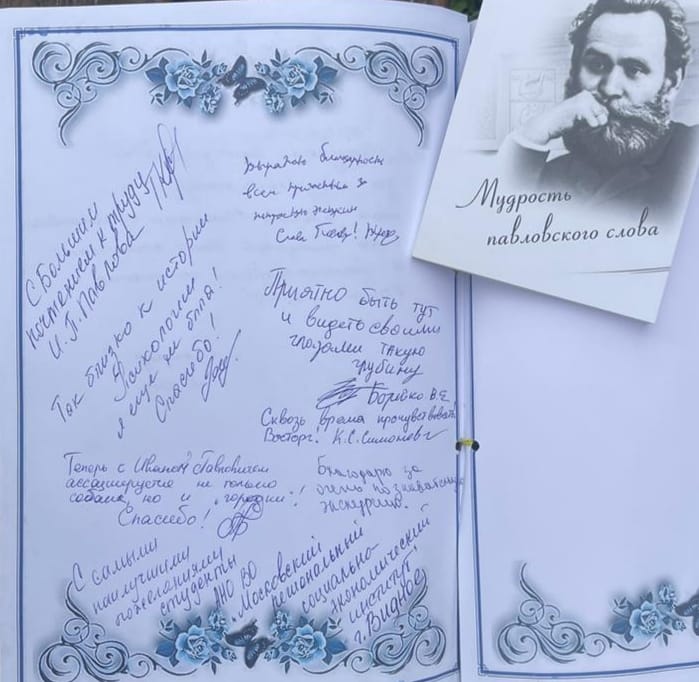 С Большим
почтением к труду
И.П. Павлова
Так близко к истории
Психологии
я еще не была!
Спасибо!
Выражаю благодарность
всем причастным за
Слава
Приятно быть тут
и видеть своими
глазами такую
глубину
Борейко В.Е.
Сквозь время прочувствовать!
Восторг! К.С.
Теперь с Иваном Павловичем
ассоциируется не только
собака, но и "городки"!
Спасибо!
Благодарю за
очень познавательную
экскурсию.
С самыми
наилучшими
пожеланиями
студенты
АНО ВО
"Московский
региональный
социально-
экономический
институт"
г. Видное
Мудрость
павловского слова